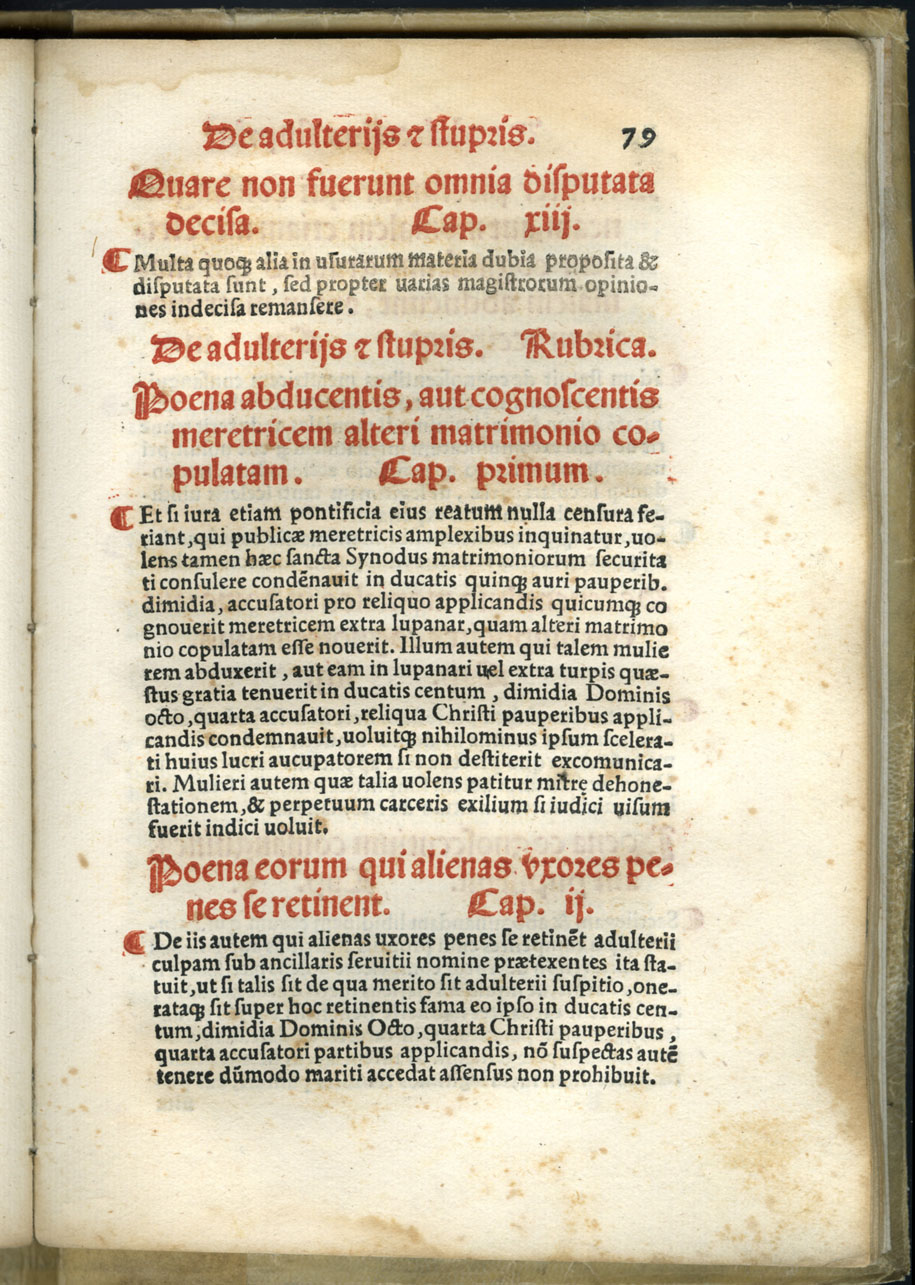 De adulterijs ⁊ ſtupris. 79
Quare non fuerunt omnia diſputata
deciſa. Cap. xiij.
⸿ Multa quoqꝫ alia in uſurarum materia dubia propoſita &
diſputata ſunt, ſed propter uarias magiſtrorum opinio-
nes indeciſa remanſere.
De adulterijs ⁊ ſtupris. Rubrica.
Poena abducentis, aut cognoſcentis
meretricem alteri matrimonio co-
pulatam. Cap. primum.
⸿ Et ſi iura etiam pontificia eius reatum nulla cenſura fe-
riant, qui publicæ meretricis amplexibus inquinatur, uo-
lens tamen hæc ſancta Synodus matrimoniorum ſecurita
ti conſulere condēnauit in ducatis quinqꝫ auri pauperib.
dimidia, accuſatori pro reliquo applicandis quicumqꝫ co
gnouerit meretricem extra lupanar, quam alteri matrimo
nio copulatam eſſe nouerit. Illum autem qui talem mulie
rem abduxerit, aut eam in lupanari uel extra turpis quæ-
ſtus gratia tenuerit in ducatis centum, dimidia Dominis
octo, quarta accuſatori, reliqua Chriſti pauperibus appli-
candis condemnauit, uoluitqꝫ nihilominus ipſum ſcelera-
ti huius lucri aucupatorem ſi non deſtiterit excomunica-
ri. Mulieri autem quæ talia uolens patitur mitrę dehone-
ſtationem, & perpetuum carceris exilium ſi iudici uiſum
fuerit indici uoluit.
Poena eorum qui alienas vxores pe-
nes ſe retinent. Cap. ij.
⸿ De iis autem qui alienas uxores penes ſe retinēt adulterii
culpam ſub ancillaris ſeruitii nomine prætexentes ita ſta-
tuit, ut ſi talis ſit de qua merito ſit adulterii ſuſpitio, one-
rataqꝫ ſit ſuper hoc retinentis fama eo ipſo in ducatis cen-
tum, dimidia Dominis Octo, quarta Chriſti pauperibus,
quarta accuſatori partibus applicandis, nō ſuſpectas autē
tenere dūmodo mariti accedat aſſenſus non prohibuit.